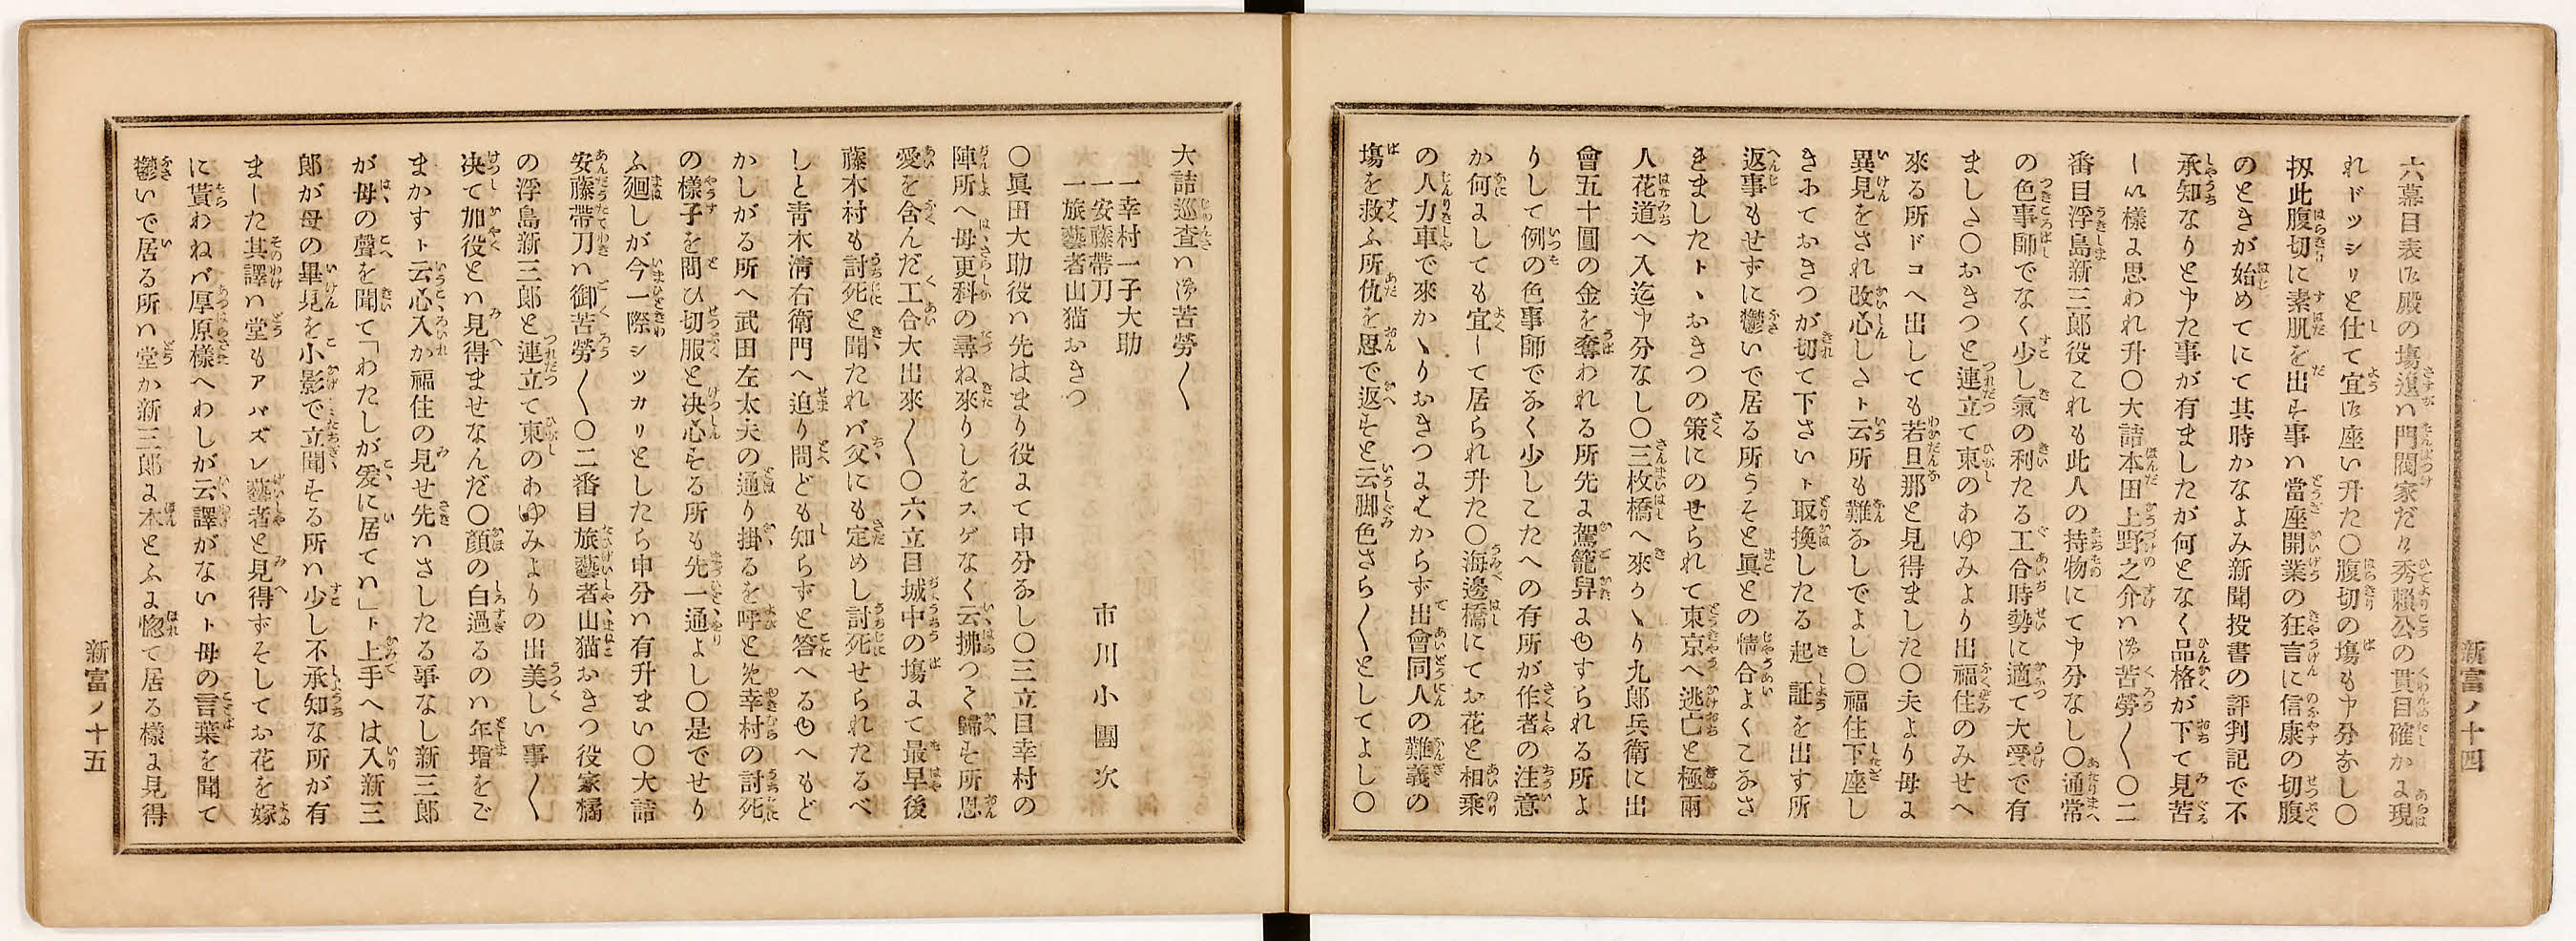 六幕目表は殿の塲遉ハ門閥家だけ秀頼公の貫目確かに現
れドッシリと仕て宜は座い升た〇腹切の塲も申分なし〇
扨此腹切に素肌を出す事ハ當座開業の狂言に信康の切腹
のときが始めてにて其時かなよみ新聞投書の評判記で不
承知なりと申た事が有ましたが何となく品格が下て見苦
しい様に思われ升〇大詰本田上野之介ハ御苦勞〳〵〇二
番目浮島新三郎役これも此人の持物にて申分なし〇通常
の色事師でなく少し氣の利たる工合時勢に適て大受で有
ました〇おきつと連立て東のあゆみより出福住のみせへ
來る所ドコへ出しても若旦那と見得ました〇夫より母に
異見をされ改心したト云所も難なしでよし〇福住下座し
きにておきつが切て下さいト取換したる起証を出す所
返事もせずに鬱いで居る所うそと眞との情合よくこなさ
きましたト、おきつの策にのせられて東京へ逃亡と極兩
人花道へ入迄申分なし〇三枚橋へ來かゝり九郎兵衛に出
會五十圓の金を奪われる所先に駕籠舁にゆすられる所よ
りして例の色事師でなく少しこたへの有所が作者の注意
か何にしても宜しく居られ升た〇海邊橋にてお花と相乘
の人力車で來かゝりおきつにはからず出會同人の難義の
塲を救ふ所仇を恩で返すと云脚色さら〳〵としてよし〇
新富ノ十四
大詰巡査ハ御苦勞〳〵
一幸村一子大助
一安藤帶刀
一旅藝者山猫おきつ
市川小團次
〇眞田大助役ハ先はまり役にて申分なし〇三立目幸村の
陣所へ母更科の尋ね來りしをスゲなく云拂つて歸す所恩
愛を含んだ工合大出來〳〵〇六立目城中の塲にて最早後
藤木村も討死と聞たれバ父にも定めし討死せられたるべ
しと青木清右衛門へ迫り問ども知らずと答へるゆへもど
かしがる所へ武田左太夫の通り掛るを呼とめ幸村の討死
の樣子を問ひ切服と决心する所も先一通よし〇是でせり
ふ廻しが今一際シッカリとしたら申分ハ有升まい〇大詰
安藤帶刀ハ御苦勞〳〵〇二番目旅藝者山猫おきつ役家橘
の浮島新三郎と連立て東のあゆみよりの出美しい事〳〵
决て加役とハ見得ませなんだ〇顔の白過るのハ年增をご
まかすト云心入か福住の見せ先ハさしたる事なし新三郎
が母の聲を聞て「わたしが爰に居てハ」ト上手へは入新三
郎が母の異見を小影で立聞する所ハ少し不承知な所が有
ました其譯ハ堂もアバズレ藝者と見得ずそしてお花を嫁
に貰わねバ厚原樣へわしが云譯がないト母の言葉を聞て
鬱いで居る所ハ堂か新三郎に本とふに惚れて居る樣に見得
新富ノ十五